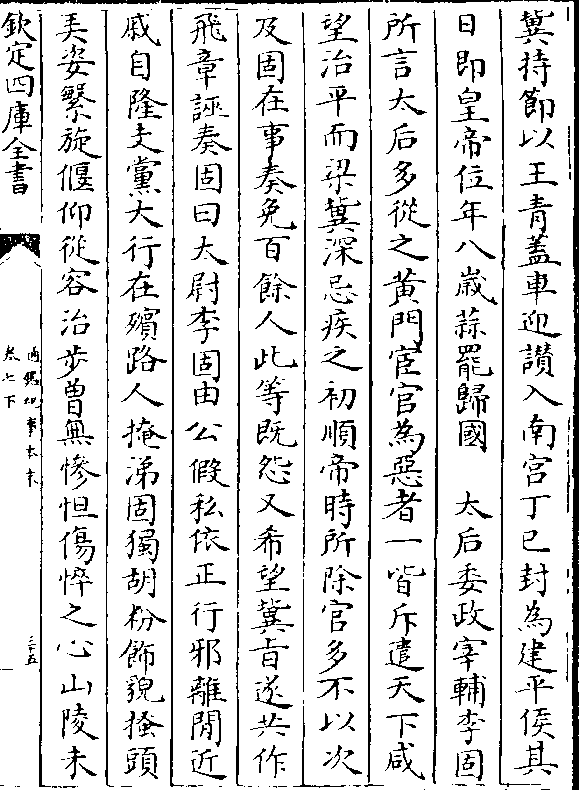 冀持節以王青蓋車迎讃入南宫丁巳封為建平侯其
日即皇帝位年八歲蒜罷歸國　太后委政宰輔李固
所言太后多從之黄門宦官為惡者一皆斥遣天下咸
望治平而梁冀深忌疾之初順帝時所除官多不以次
及固在事奏免百餘人此等既怨又希望冀㫖遂共作
飛章誣奏固曰太尉李固由公假私依正行邪離間近
戚自隆支黨大行在殯路人掩涕固獨胡粉飾貌搔頭
弄姿槃旋偃仰從容治步曽無慘怛傷悴之心山陵未
欽定四庫全書
通鑑紀事本末
卷七下
三十五